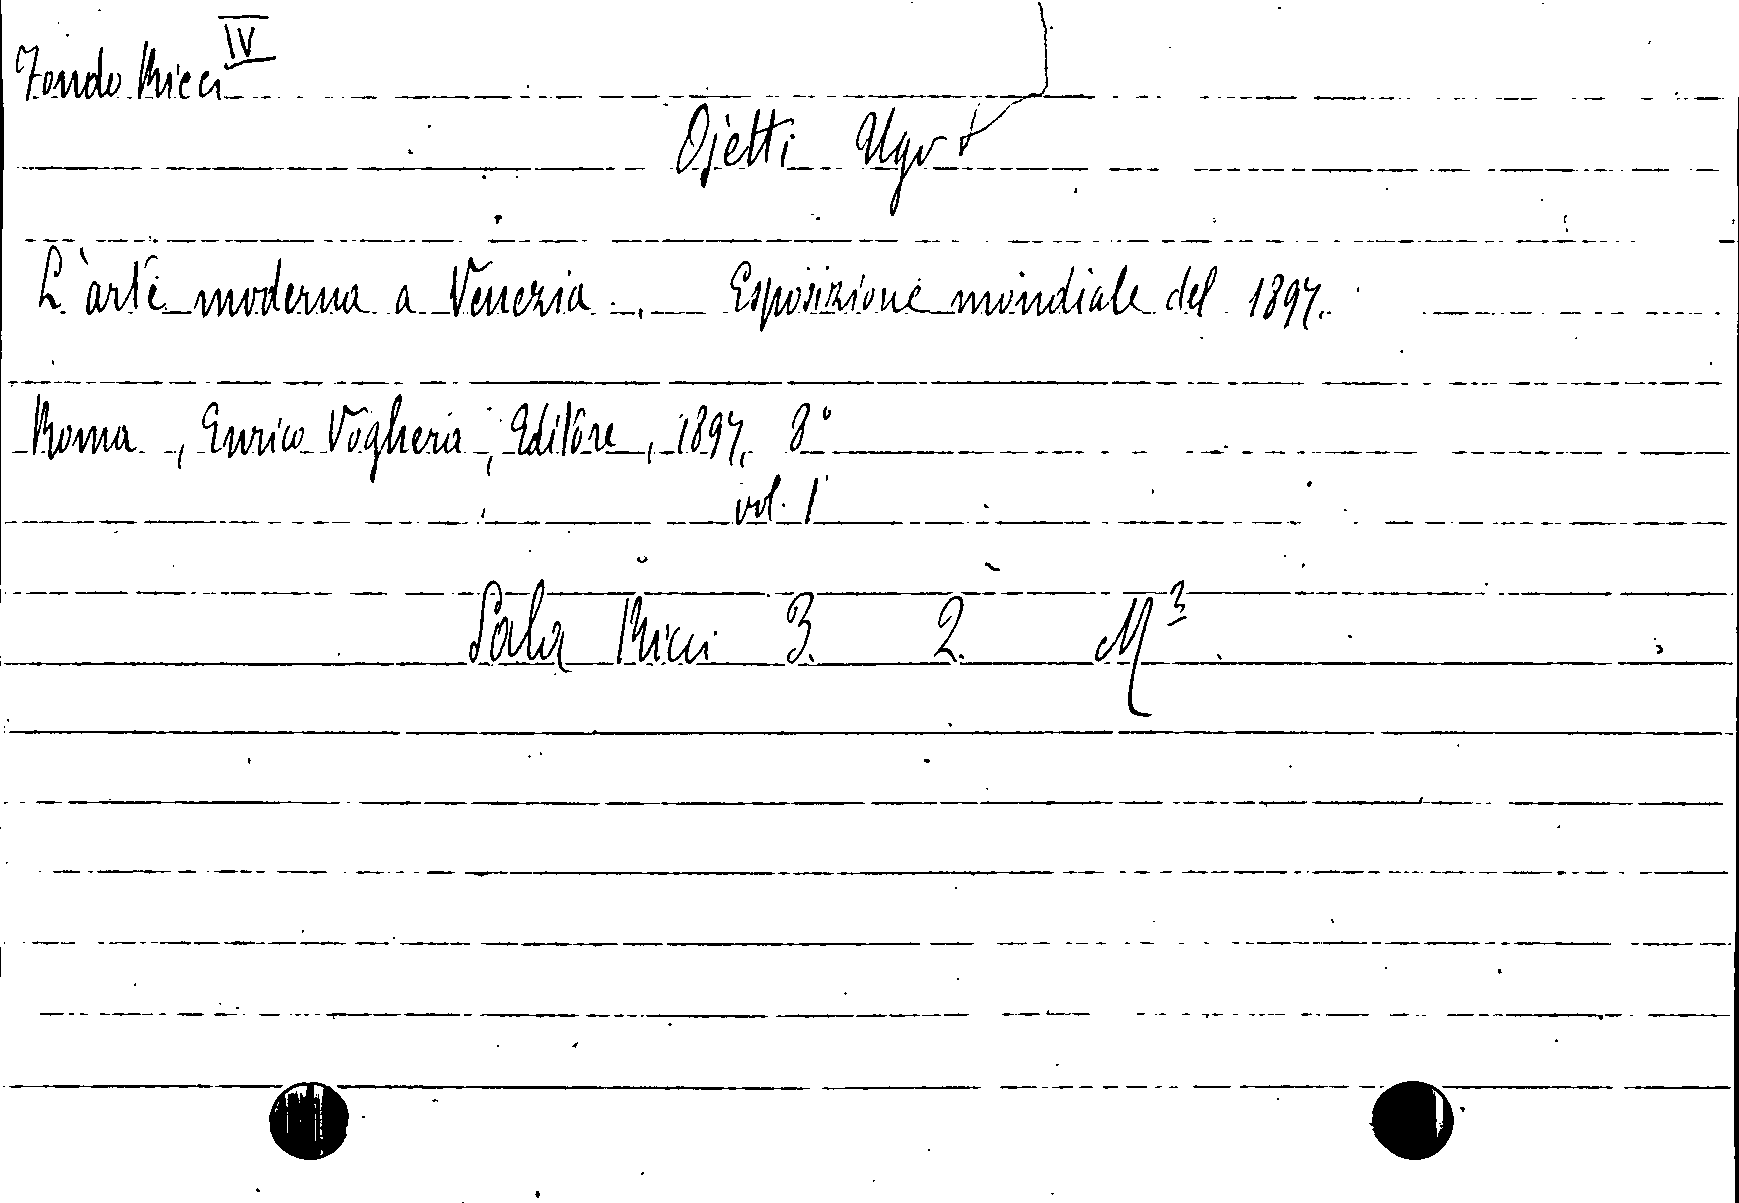 Fondo Ricci IV
Ojetti Ugo
L'arte moderna a Venezia. Esposizione mondiale del 1897.
Roma, Enrico Voghera, Editore, 1897. 8°
vol. 1
Sala Ricci 3. 2. M³